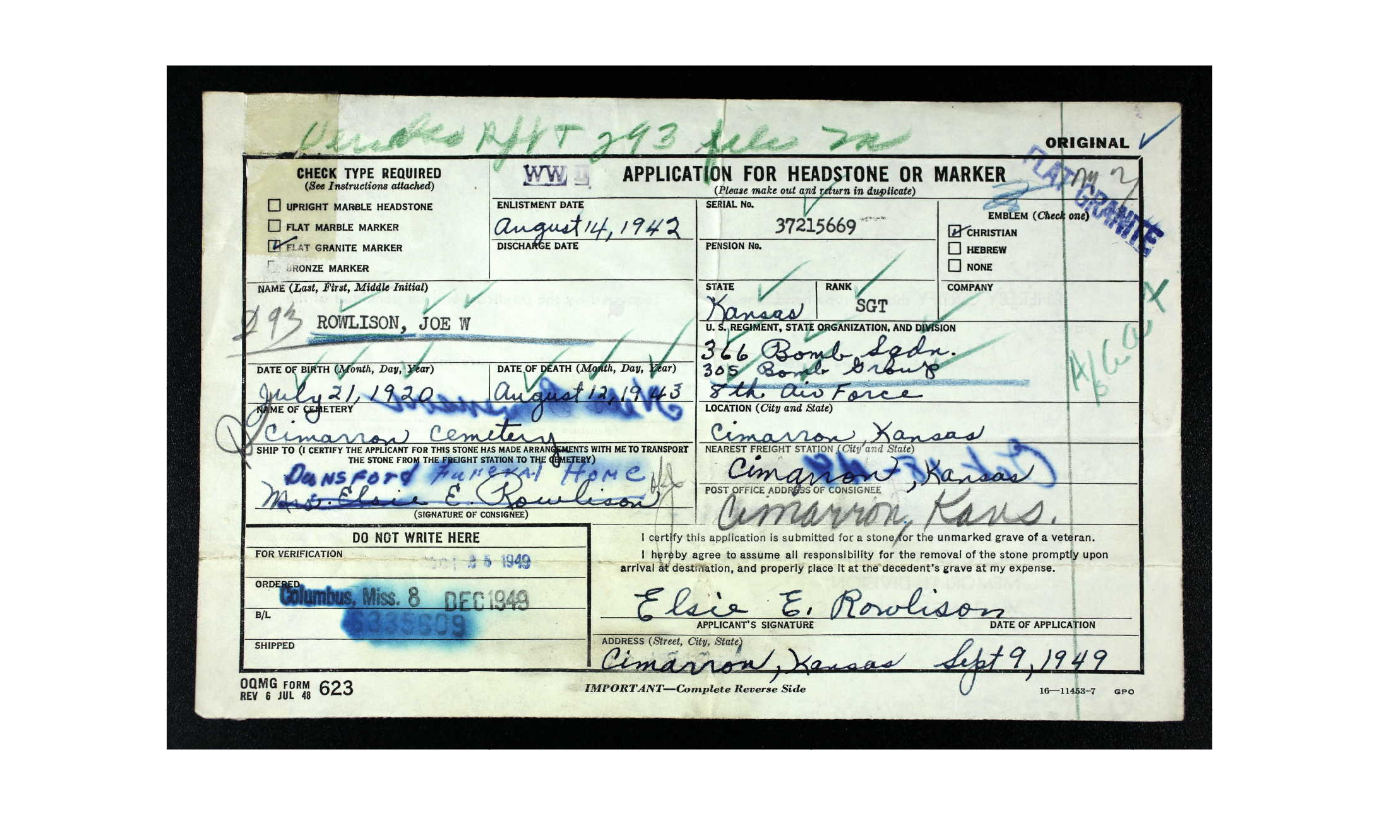 293 file
ORIGINAL
CHECK TYPE REQUIRED
(See Instructions attached)
UPRIGHT MARBLE HEADSTONE
FLAT MARBLE MARKER
FLAT GRANITE MARKER
BRONZE MARKER
WW II
APPLICATION FOR HEADSTONE OR MARKER
(Please make out and return in duplicate)
FLAT GRANITE
ENLISTMENT DATE
August 14, 1942
DISCHARGE DATE
SERIAL No.
37215669
PENSION No.
EMBLEM (Check one)
CHRISTIAN
HEBREW
NONE
NAME (Last, First, Middle Initial)
293
ROWLISON, JOE W
STATE
Kansas
RANK
SGT
COMPANY
U. S. REGIMENT, STATE ORGANIZATION, AND DIVISION
366 Bomb Sqdn.
305 Bomb Group
8th Air Force
DATE OF BIRTH (Month, Day, Year)
July 21, 1920
DATE OF DEATH (Month, Day, Year)
August 12, 1943
NAME OF CEMETERY
Cimarron Cemetery
LOCATION (City and State)
Cimarron, Kansas
SHIP TO (I CERTIFY THE APPLICANT FOR THIS STONE HAS MADE ARRANGEMENTS WITH ME TO TRANSPORT
THE STONE FROM THE FREIGHT STATION TO THE CEMETERY)
DUNSFORD FUNERAL HOME
Mrs. Elsie E. Rowlison
(SIGNATURE OF CONSIGNEE)
NEAREST FREIGHT STATION (City and State)
Cimarron, Kansas
POST OFFICE ADDRESS OF CONSIGNEE
Cimarron, Kans.
DO NOT WRITE HERE
FOR VERIFICATION
1949
ORDERED
Columbus, Miss. 8 DEC 1949
B/L
6335609
SHIPPED
I certify this application is submitted for a stone for the unmarked grave of a veteran.
I hereby agree to assume all responsibility for the removal of the stone promptly upon
arrival at destination, and properly place it at the decedent's grave at my expense.
Elsie E. Rowlison
APPLICANT'S SIGNATURE
DATE OF APPLICATION
ADDRESS (Street, City, State)
Cimarron, Kansas Sept 9, 1949
OQMG FORM 623
REV 6 JUL 48
IMPORTANT—Complete Reverse Side
16—11453-7 GPO